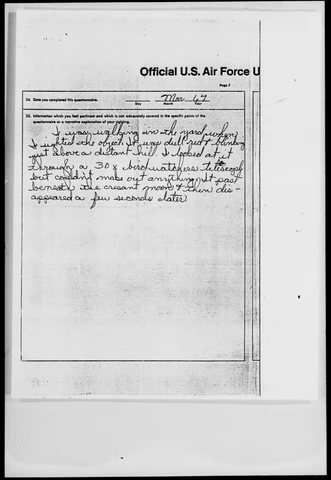 Official U.S. Air Force U
Page 7
34. Date you completed this questionnaire: Mar 67
Day Month Year
35. Information which you feel pertinent and which is not adequately covered in the specific points of the
questionnaire or a narrative explanation of your sighting.
I was walking in the yard when
I sighted the object. It was dull red & blinking
just above a distant hill. I looked at it
through a 30 x birdwatchers telescope
but couldn't make out anything. It pas
beneath the cresant moon & then dis-
appeared a few seconds later